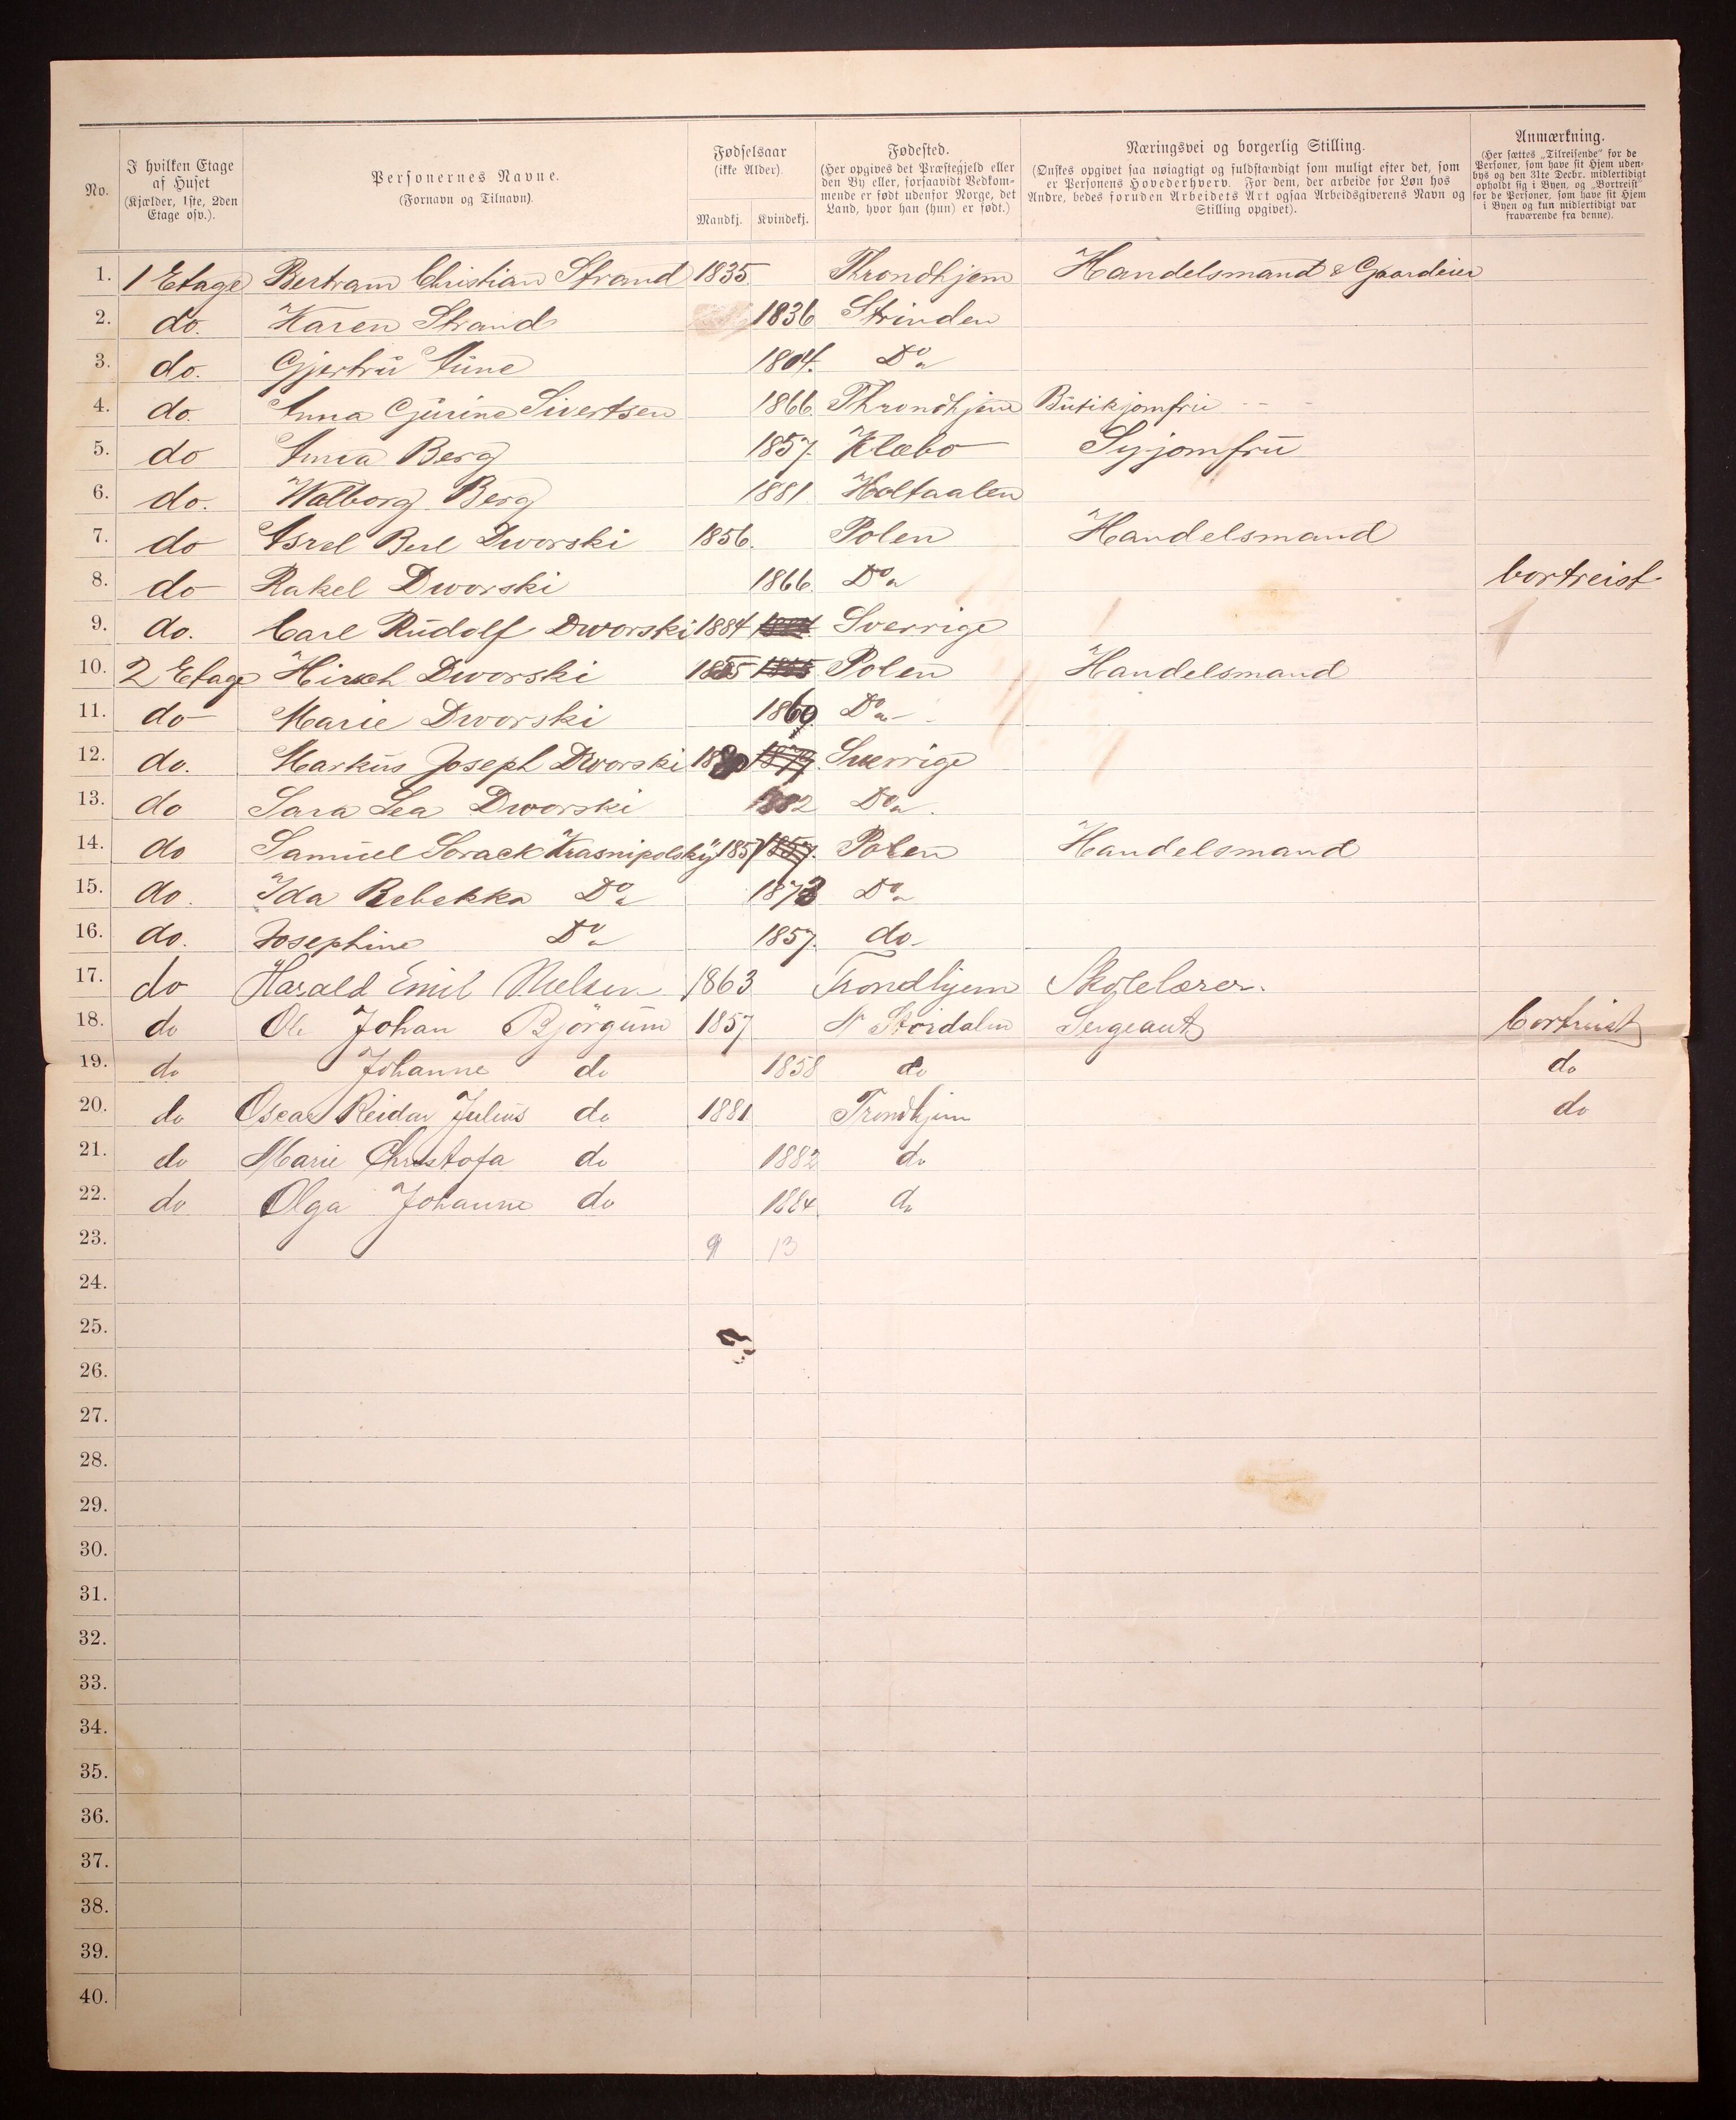 No.
I hvilken Etage af Huset (Kjælder, 1ste, 2den Etage osv.).
Personernes Navne. (Fornavn og Tilnavn).
Fødselsaar (ikke Alder).
Mandkj. Kvindekj.
Fødested. (Her opgives det Præstegjeld eller den By eller, forsaavidt Vedkommende er født udenfor Norge, det Land, hvor han (hun) er født.)
Næringsvei og borgerlig Stilling. (Ønskes opgivet saa nøiagtigt og fuldstændigt som muligt efter det, som er Personens Hovederhverv. For dem, der arbeide for Løn hos Andre, bedes foruden Arbeidets Art ogsaa Arbeidsgiverens Navn og Stilling opgivet).
Anmærkning. (Her sættes „Tilreisende" for de Personer, som have sit Hjem udenbys og den 31te Decbr. midlertidigt opholdt sig i Byen, og „Bortreist" for de Personer, som have sit Hjem i Byen og kun midlertidigt var fraværende fra denne).
1. 1 Etage Bertram Christian Strand 1835 Throndhjem Handelsmand & Gaardeier
2. do. Karen Strand 1836 Strinden
3. do. Gjertrü Aüne 1804. Do
4. do. Anna Gürine Sivertsen 1866. Throndhjem Bütikjomfrü
5. do Anna Berg 1857. Klæbo Syjomfrü
6. do. Walborg Berg 1881 Holtaalen
7. do Asrel Berl Dworski 1856. Polen Handelsmand
8. do Rakel Dworski 1866. Do bortreist
9. do. Carl Rüdolf Dworski 1884 Sverrige
10. 2 Etage Hirsch Dworski 1855 1855 Polen Handelsmand
11. do Marie Dworski 1860. Do
12. do. Marküs Joseph Dworski 1880 1879 Sverrige
13. do Sara Lea Dworski 1882 Do
14. do Samüel Sorack Krasnipolsky 1857 1857. Polen Handelsmand
15. do. Ida Rebekka Do 1873 Do
16. do. Josephine Do 1857. do
17. do Harald Emil Nielsen 1863 Trondhjem Skolelærer.
18. do Ole Johan Bjørgum 1857 N Stördalen Sergeant bortreist
19. do Johanne do 1858 do do
20. do Oscar Reidar Julius do 1881 Trondhjem do
21. do Marie Christofa do 1882 do
22. do Olga Johanne do 1884 do
23. 9 13
24.
25.
26.
27.
28.
29.
30.
31.
32.
33.
34.
35.
36.
37.
38.
39.
40.